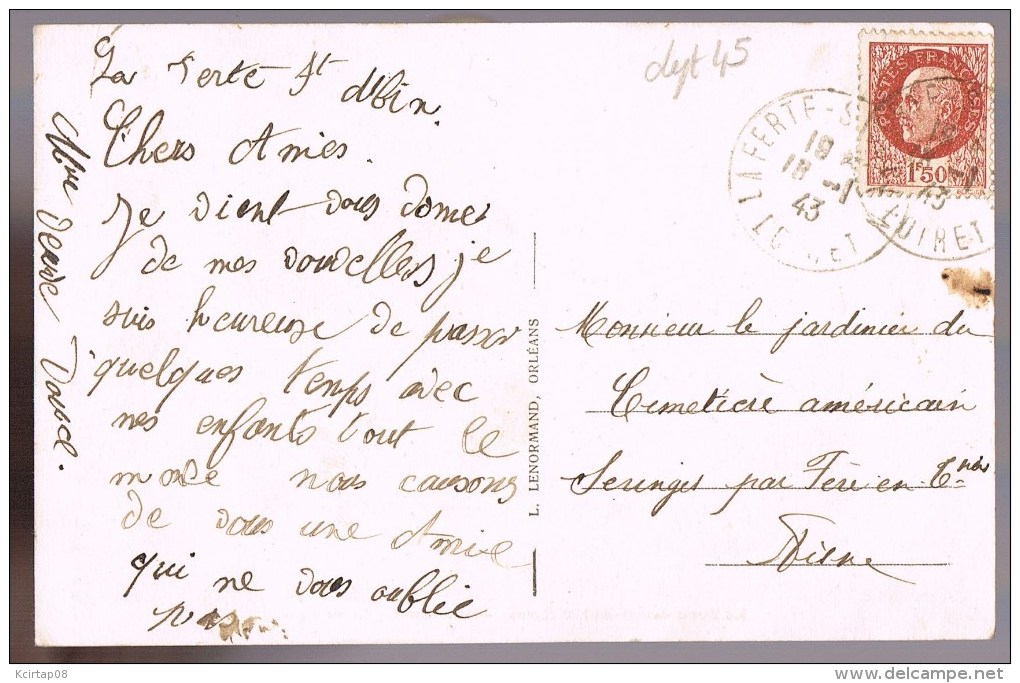 La Ferté St Albin.
Chers Amies.
Je vient vous donner
de mes nouvelles je
suis heureuse de passer
quelques temps avec
mes enfants tout le
monde nous causons
de vous une Amie
qui ne vous oublie
pas
dept 45
LA FERTE-S
18
18 -1
43
LOIRET
POSTES FRANÇAISES
1F50
43
LOIRET
L. LENORMAND, ORLÉANS
Monsieur le jardinier du
Cimetière américain
Seringes par Fère en Tnois
Aisne
Kcirtap08
delcampe.net